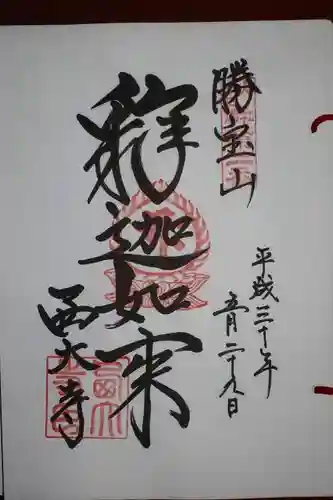 勝宝山
平成三十年
五月二十九日
釈迦如来
西大寺